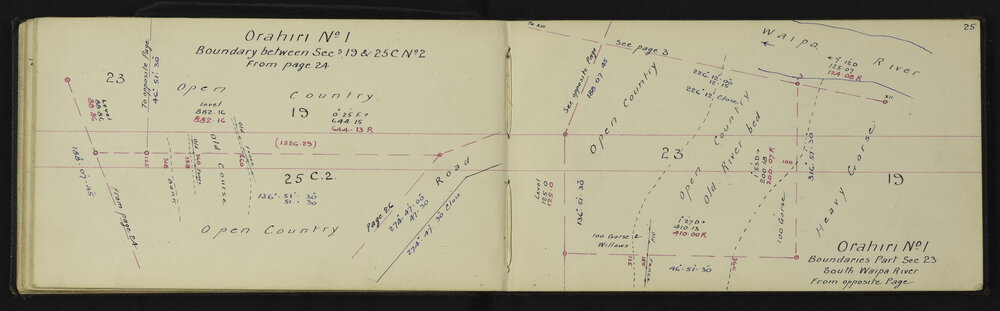 Orahiri Nº 1
Boundary between Sec.s 19 & 25C Nº 2
From page 24
23
To opposite Page
46·51·30
Open
Country
Level
88·86
88·86
Level
882·16
882·16
19
0°25 E+
644·15
644·13 R
(1526·29)
Old
Old Course
Bank
25 C.2.
136°·51'·30
51·30
188·07·45
From page 24
Open Country
Page 26
274·47·00
47·30
274·47·30 Close
Road
25
To
See page 3
Waipa
River
See opposite Page
188·07·45
Open Country
226·12·00
12·15
226·12 Close
Open Country
Old River bed
125·07
124·08 R
XII
23
Level
125·0
125·0
136·51·30
200·18
200·07 R
100
316·51·30
Heavy Gorse
19
100 Gorse
1°27 D+
410·13
410·00 R
100 Gorse &
Willows
Old
Fence
46·51·30
Orahiri Nº 1
Boundaries Part Sec 23
South Waipa River
From opposite Page